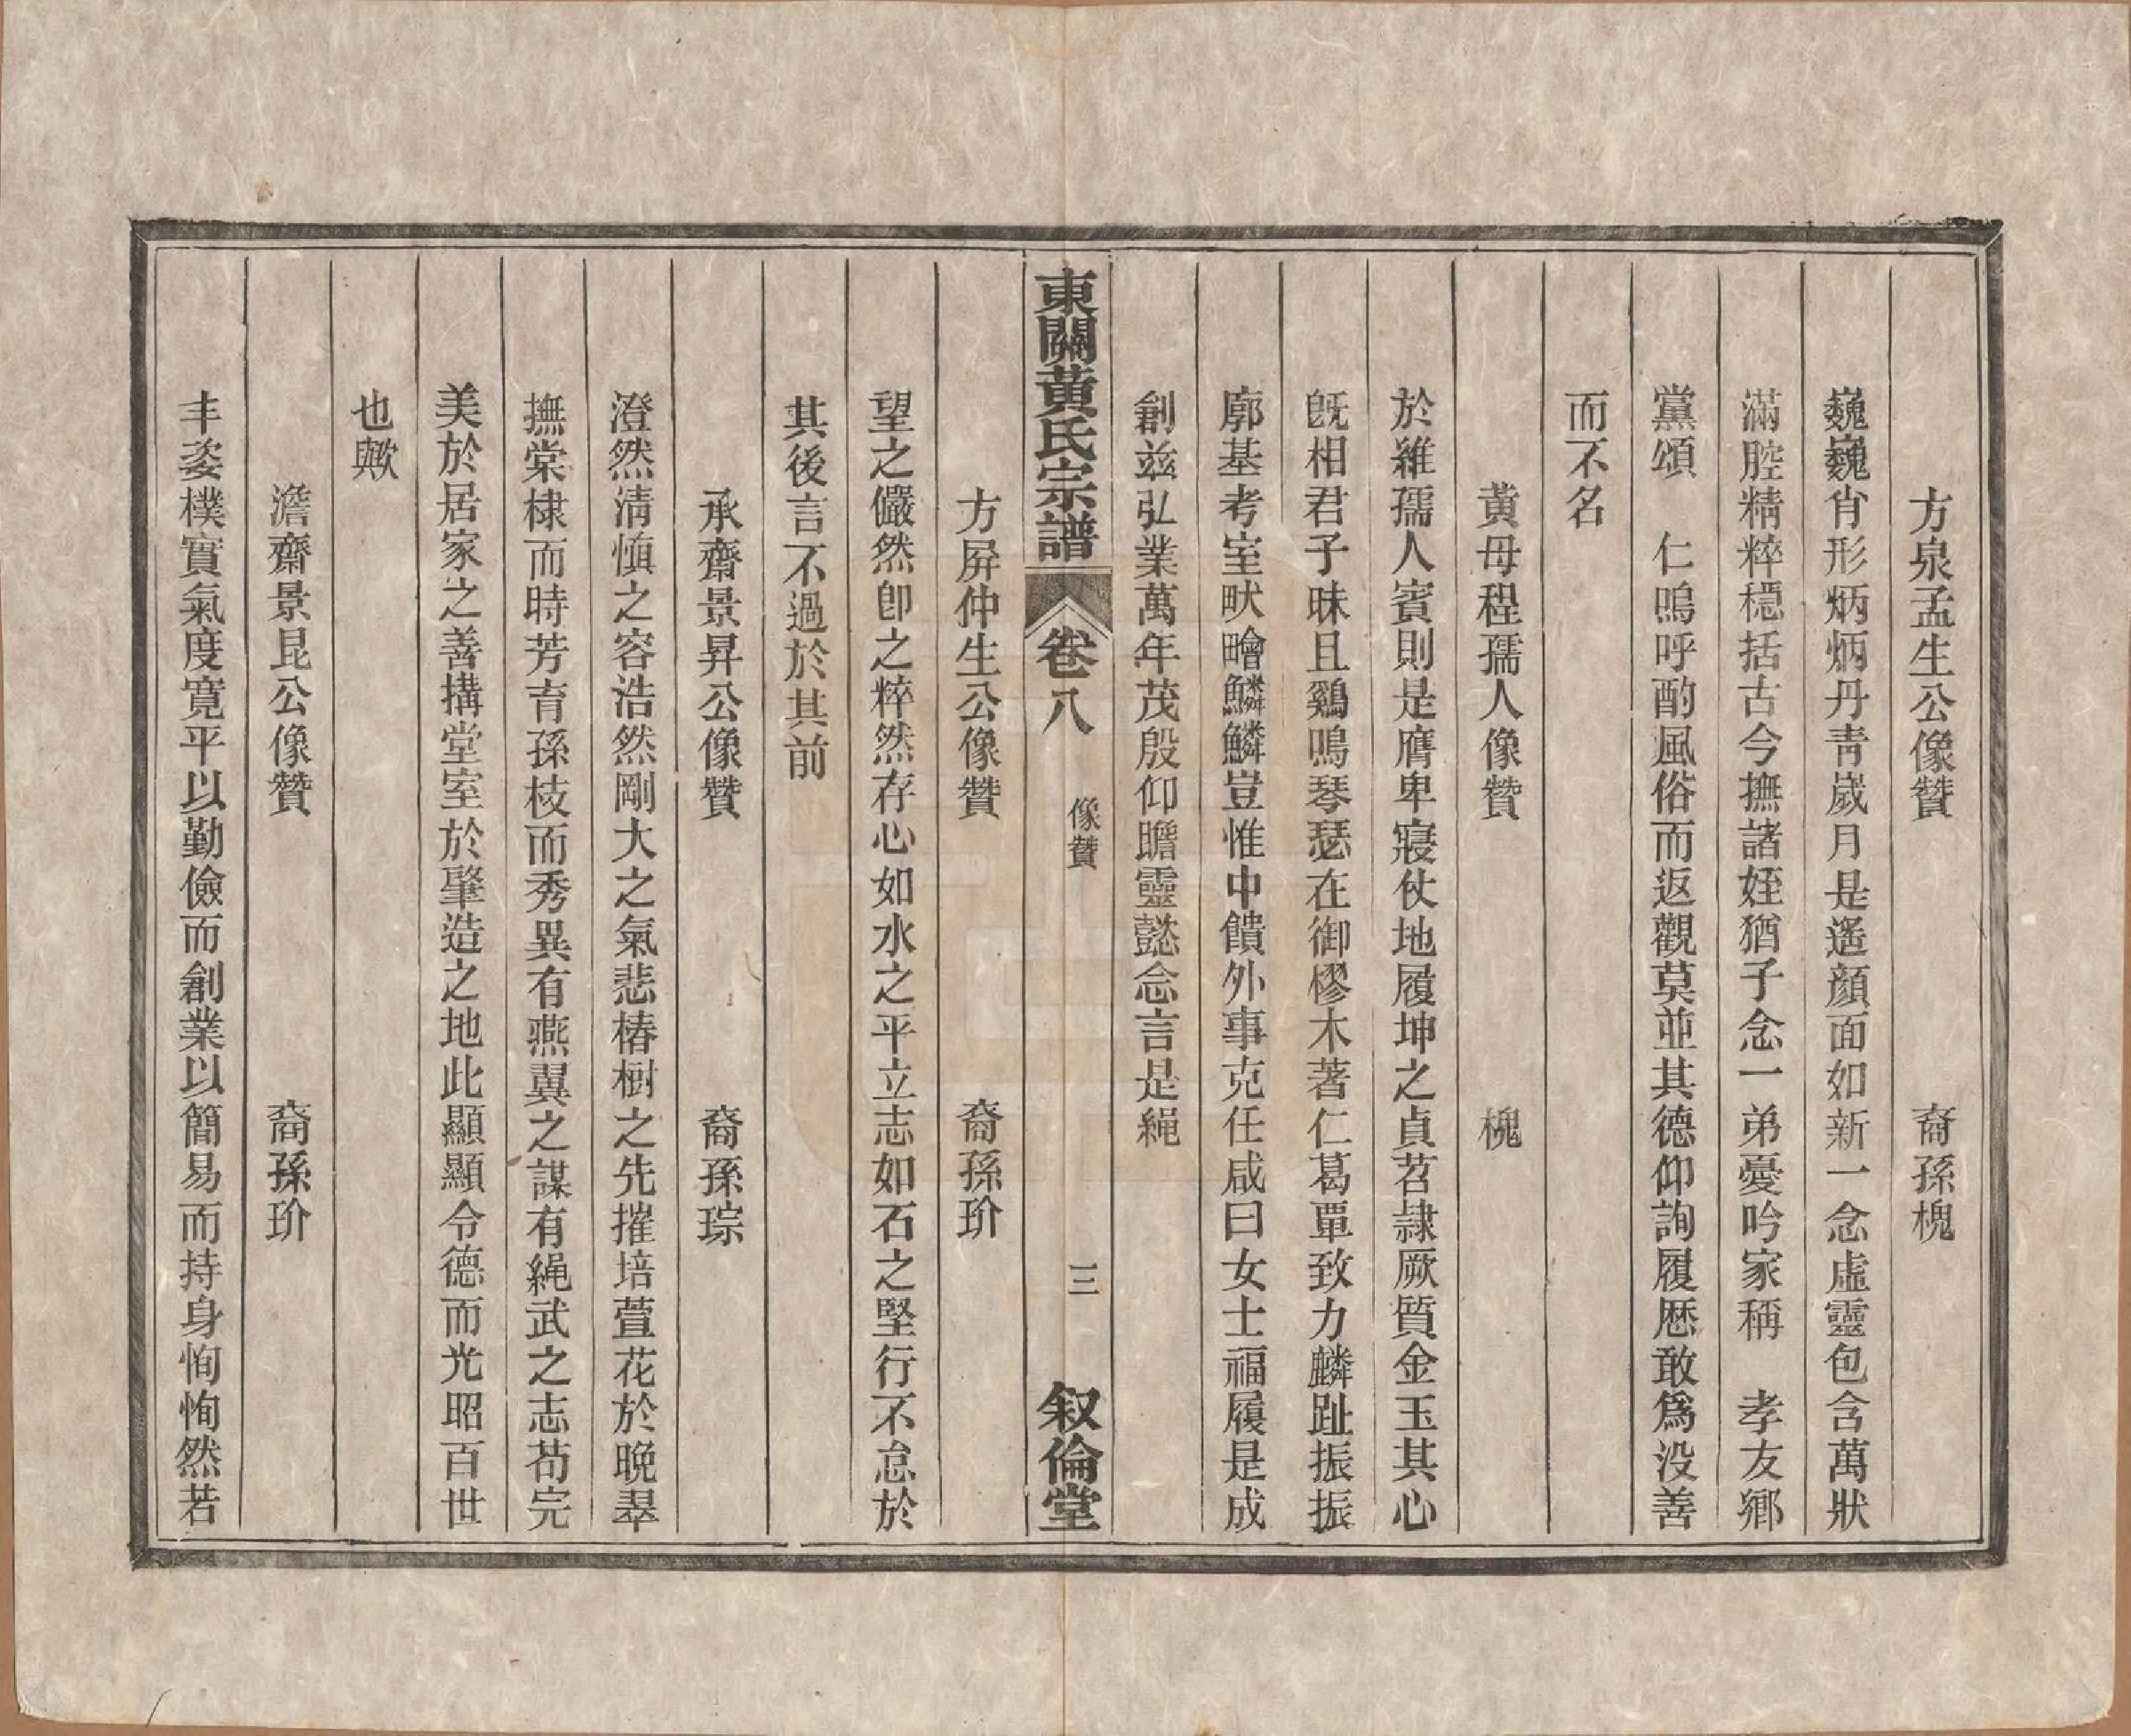 方泉孟生公像贊　裔孫槐
巍巍肖形炳炳丹靑嵗月是遙顔面如新一念虛靈包含萬狀
滿腔精粹穩括古今撫諸姪猶子念一弟憂吟家稱　孝友鄉
黨頌　仁嗚呼酌風俗而返觀莫並其德仰詢履歷敢爲没善
而不名
黄母程孺人像贊　槐
於維孺人賓則是膺卑寢仗地履坤之貞苕隷厥質金玉其心
旣相君子昧且鷄鳴琴瑟在御樛木著仁葛覃致力麟趾振振
廓基考室畎畮鱗鱗豈惟中饋外事克任咸曰女士福履是成
創兹弘業萬年茂殷仰瞻靈懿念言是繩
東關黄氏宗譜　卷八　像贊　三　叙倫堂
方屏仲生公像贊　裔孫玠
望之儼然卽之粹然存心如水之平立志如石之堅行不怠於
其後言不過於其前
承齋景昇公像贊　裔孫琮
澄然淸愼之容浩然剛大之氣悲椿樹之先摧培萱花於晚翠
撫棠棣而時芳育孫枝而秀異有燕翼之謀有繩武之志苟完
美於居家之善搆堂室於肇造之地此顯顯令德而光昭百世
也歟
澹齋景昆公像贊　裔孫玠
丰姿樸實氣度寬平以勤儉而創業以簡易而持身恂恂然若